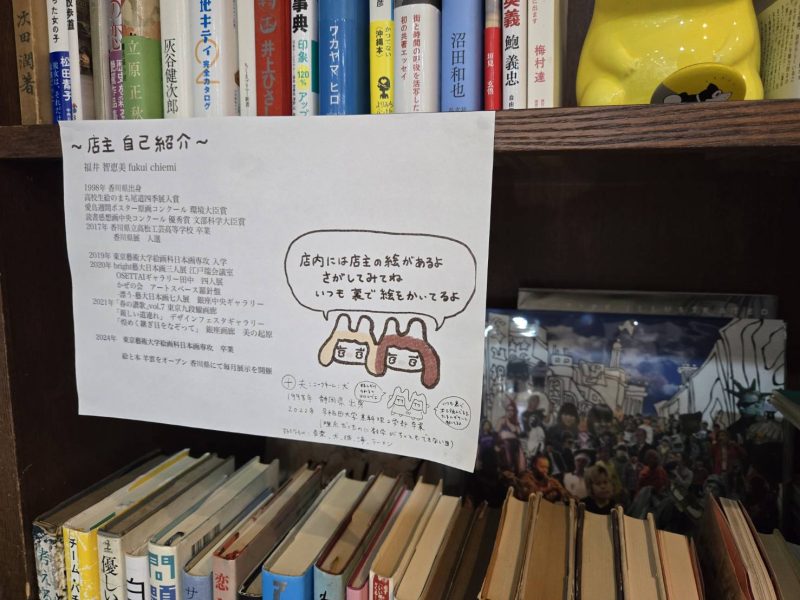 次田 潤 著
った女の子
松田青子
立原正秋
灰谷健次郎
地キティ 完全カタログ
井上ひさし
事典
印象
120%
アップ
ワカヤマ ヒロ
かつてない
(沖縄本)
街と時間の呼吸を活写した
初の共著エッセイ
沼田和也
英義
鮑義忠
自由
に出ます
梅村 達
～店主 自己紹介～
福井 智恵美 fukui chiemi
1998年 香川県出身
高校生絵のまち尾道四季展入賞
愛鳥週間ポスター原画コンクール 環境大臣賞
読書感想画中央コンクール 優秀賞 文部科学大臣賞
2017年 香川県立高松工芸高等学校 卒業
香川県展 入選
2019年 東京藝術大学絵画科日本画専攻 入学
2020年 bright藝大日本画三人展 江戸堀会議室
OSETTAIギャラリー田中 四人展
かぜの会 アートスペース羅針盤
-漂う-藝大日本画七人展 銀座中央ギャラリー
2021年「春の讃歌」vol.7 東京九段耀画廊
「厳しい道連れ」 デザインフェスタギャラリー
「煌めく継ぎ目をなぞって」 銀座画廊 美の起原
2024年 東京藝術大学絵画科日本画専攻 卒業
絵と本 羊雲をオープン 香川県にて毎月展示を開催
店内には店主の絵があるよ
さがしてみてね
いつも 裏で絵をかいてるよ
1998年 静岡県 出身
2022年 早稲田大学 基幹理工学部 卒業
チーム・バチ
優しい
問題
サ
恋